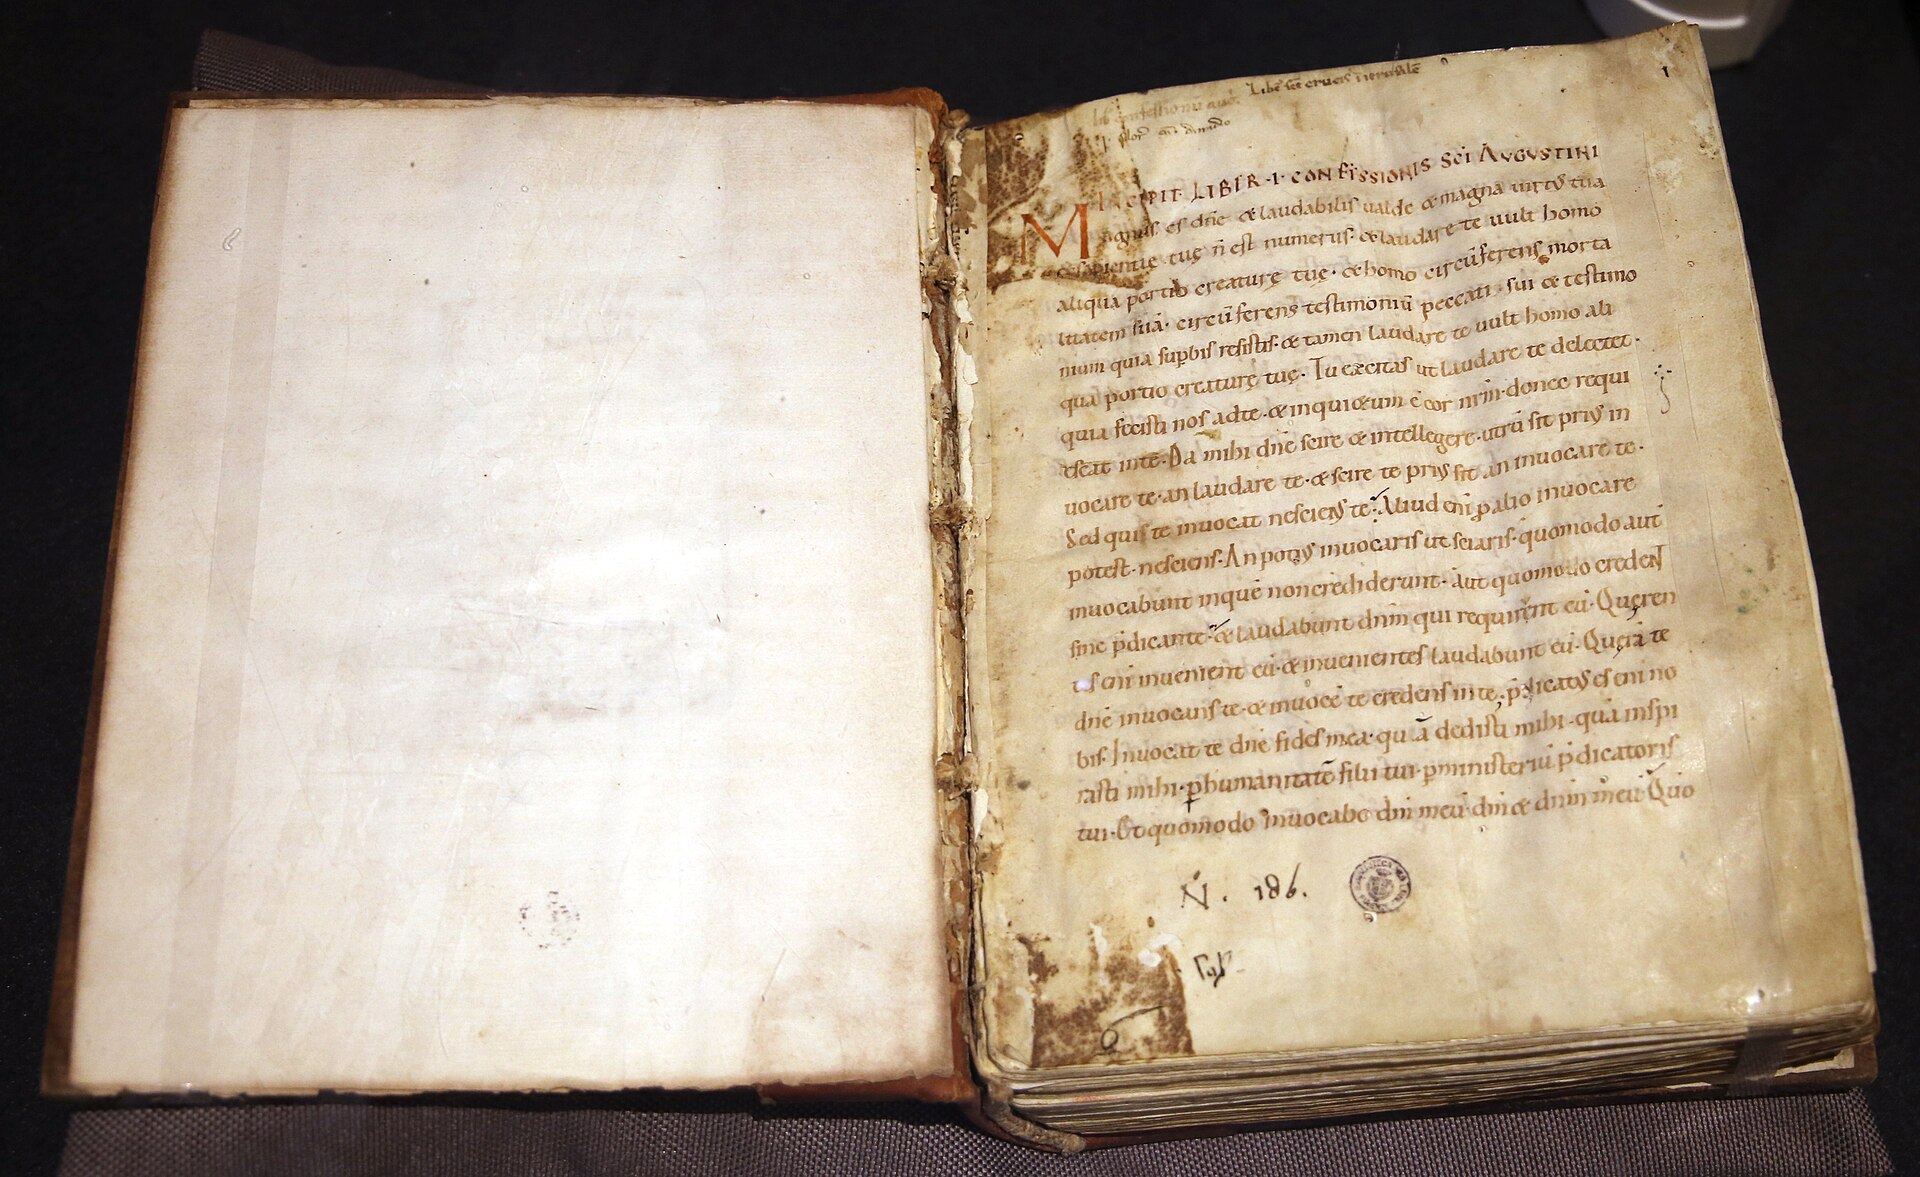 Libẽ sc̃e crucis i ierusalẽ
lib̃ confessionũ aug.
1
INCIPIT LIBER·I·CONFESSIONIS SCI AVGVSTINI
Magnus es dñe & laudabilis ualde & magna uirtꝰ tua
& sapientię tuę ñ est numerus· & laudare te uult homo
aliqua portio creaturę tuę· & homo circũferens morta
litatem suã· circũferens testimoniũ peccati sui & testimo
nium quia supbis resistis· & tamen laudare te uult homo ali
qua portio creaturę tuę· Tu excitas ut laudare te delectet·
quia fecisti nos ad te· & inquietum ẽ cor nr̃m· donec requi
escat in te· Da mihi dñe scire & intellegere· utrũ sit priꝰ in
uocare te· an laudare te· & scire te priꝰ sit an inuocare te·
Sed quis te inuocat nesciens te· Aliud eni p alio inuocare
potest· nesciens· An potiꝰ inuocaris ut sciaris· quomodo aut
inuocabunt in quẽ non crediderunt· aut quomodo credent
sine p̃dicante· & laudabunt dñm qui requirent eũ· Quęren
tes eni inuenient eũ· & inuenientes laudabunt eũ· Quęrã te
dñe inuocans te· & inuocẽ te credens in te· p̃dicatꝰ es eni no
bis· Inuocat te dñe fides mea· quã dedisti mihi· quã inspi
rasti mihi· p humanitatẽ filii tui· p ministeriũ p̃dicatoris
tui· Et quomodo inuocabo dm̃ meũ· dm̃ & dñm meũ· Quo
N. 186.